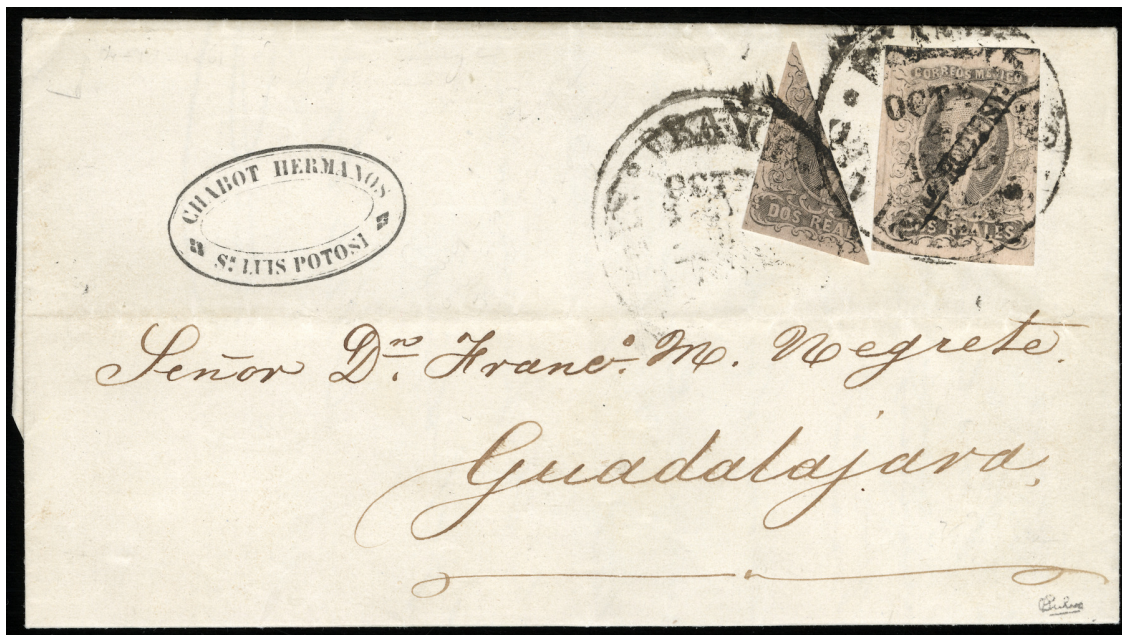 CHABOT HERMANOS
Sn. LUIS POTOSI
FRAN
OCT
DOS REAL
CORREOS MEJICO
OCTE
DOS REALES
Señor Dn. Franco. M. Negrete.
Guadalajara.